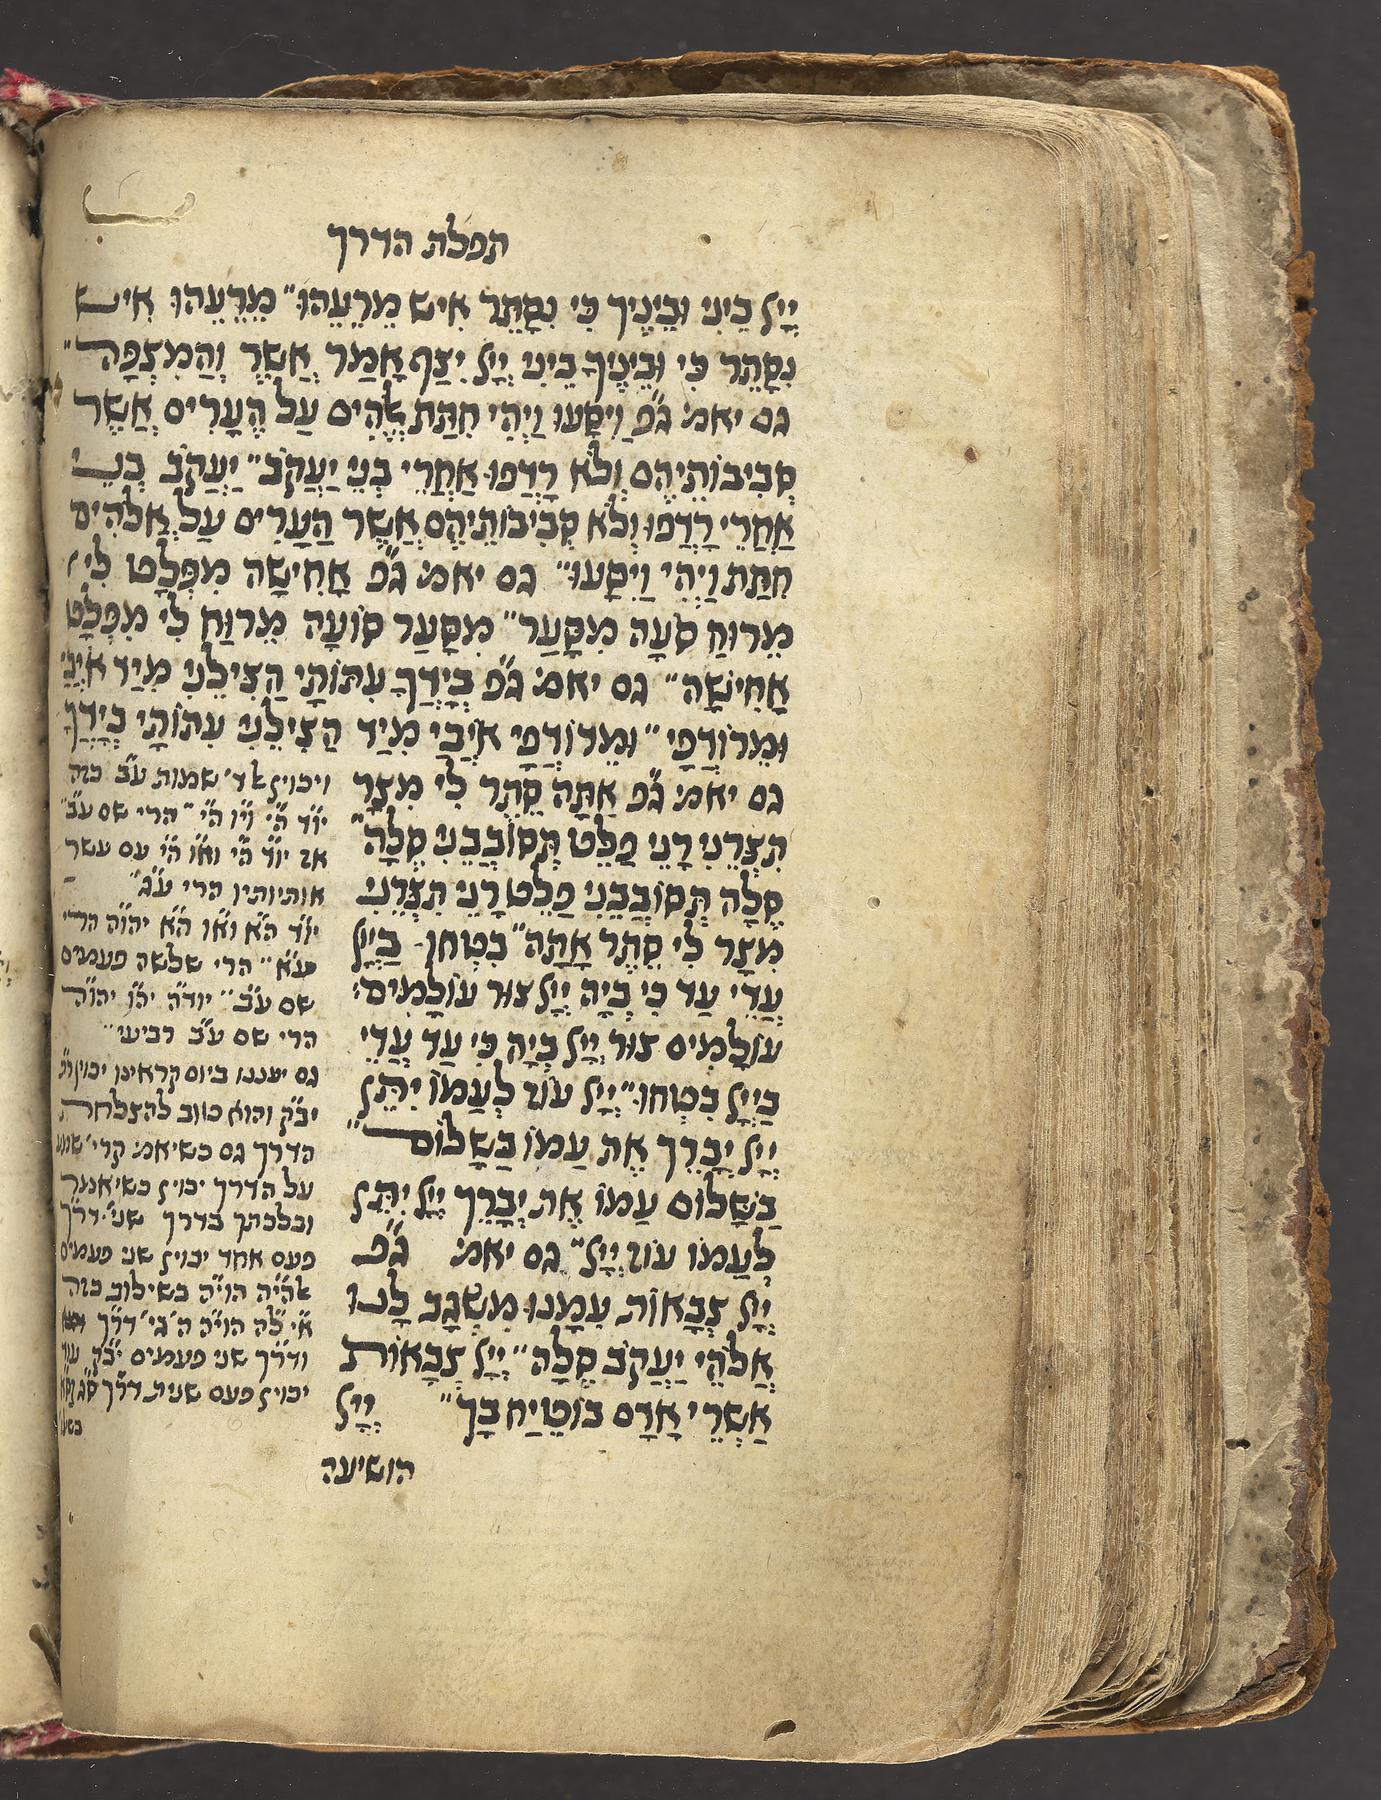 תפלת הדרך
יְיָל בֵּינִי וּבֵינֶיךָ כִּי נִסָּתֵר אִישׁ מֵרֵעֵהוּ״ מֵרֵעֵהוּ אִישׁ
נִסָּתֵר כִּי וּבֵינֶיךָ בֵּינִי יְיָל יִצֶף אָמַר אֲשֶׁר וְהַמִּצְפָּה״
גם יאמ׳ ג״פ וַיִּסָּעוּ וַיְהִי חִתַּת אֱלֹהִים עַל הֶעָרִים אֲשֶׁר
סְבִיבוֹתֵיהֶם וְלֹא רָדְפוּ אַחֲרֵי בְּנֵי יַעֲקֹב״ יַעֲקֹב בְּנֵי
אַחֲרֵי רָדְפוּ וְלֹא סְבִיבוֹתֵיהֶם אֲשֶׁר הַעָרִים עַל אֱלֹהִים
חִתַּת וַיְהִי וַיִּסָּעוּ״ גם יאמ׳ ג״פ אָחִישָׁה מִפְלָט לִי
מֵרוּחַ סֹעָה מִסָּעַר״ מִסָּעַר סוֹעָה מֵרוּחַ לִי מִפְלָט
אָחִישָׁה״ גם יאמ׳ ג״פ בְּיָדְךָ עִתּוֹתָי הַצִּילֵנִי מִיַּד אוֹיְבַי
וּמֵרוֹדְפָי״ וּמֵרוֹדְפָי אוֹיְבַי מִיַּד הַצִּילֵנִי עִתּוֹתָי בְּיָדְךָ
גם יאמ׳ ג״פ אַתָּה סֵתֶר לִי מִצָּר
תִּצְּרֵנִי רָנֵּי פַלֵּט תְּסוֹבֲבֵנִי סֶלָה״
סֶלָה תְּסוֹבֲבֵנִי פַלֵּט רָנֵּי תִּצְּרֵנִי
מִצָּר לִי סֵתֶר אַתָּה״ בִּטְחוּ בַיְיָל
עֲדֵי עַד כִּי בְּיָה יְיָל צוּר עוֹלָמִים:
עוֹלָמִים צוּר יְיָל בְּיָה כִּי עַד עֲדֵי
בַיְיָל בִּטְחוּ״ יְיָל עוֹז לְעַמּוֹ יִתֵּל
יְיָל יְבָרֵךְ אֶת עַמּוֹ בַשָּׁלוֹם״
בַשָּׁלוֹם עַמּוֹ אֶת יְבָרֵךְ יְיָל יִתֵּל
לְעַמּוֹ עוֹז יְיָל״ גם יאמ׳ ג״פ
יְיָל צְבָאוֹת עִמָּנוּ מִשְׂגָּב לָנוּ
אֱלֹהֵי יַעֲקֹב סֶלָה״ יְיָל צְבָאוֹת
אַשְׁרֵי אָדָם בּוֹטֵיחַ בָּךְ״ יְיָל
הושיעה
ויכוין ד׳ שמות ע״ב כזה
יו״ד ה״י וי״ו ה״י ״הרי שם ע״ב״
או יו״ד ה״י וא״ו ה״י עם עשר
אותיותיו הרי ע״ג״
יו״ד ה״א וא״ו ה״א יהו״ה הרי
הרי שלשה פעמים
שם ע״ב״ יוד״ה יה״ו יהו״ה
הרי שם ע״ב רביעי״
גם יעננו ביום קראינו יכוין
יב״ק והוא טוב להצלחת
הדרך גם כשיאמ׳ קרי׳ שמע
על הדרך יכוין כשיאמר
ובלכתך בדרך שני׳ דר״ך
פעם אחד יכוין שני פעמים
אהי״ה הוי״ה בשילוב כזה
הוי״ה ה׳ בי׳ דר״ך
ודר״ך שני פעמים יב״ק עוד
יכוין פעם שנית דר״ך